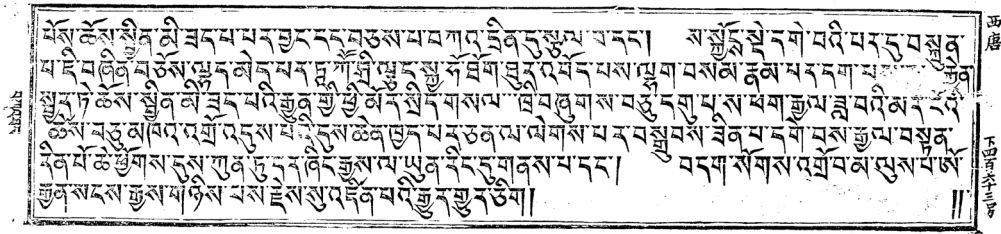 པོས་ཆོས་སྦྱིན་མི་ཟད་པ་པར་བྱང་དང་བཅས་པ་བཀའ་དྲིན་དུ་སྩལ་བ་དང༌། ས་སྐྱོང་སྡེ་དགེ་བའི་པར་དུ་བསྒྲུན་
པ་འདི་བཞིན་བཅོས་ལྷད་མེད་པར་ འབོད་པས་ལྷག་བསམ་རྣམ་པར་དག་པ་
སྦྱོར་ཏེ་ཆོས་སྦྱིན་མི་ཟད་པའི་རྒྱུན་གྱི་ཕྱི་མོར་སྲིད་གསལ་ ཁྲི་བཞུགས་བཅུ་དགུ་པ་ས་ཕག་རྒྱལ་ཟླ་བའི་མར་ངོའི་
ཚེས་བཅུ་མཁའ་འགྲོ་འདུས་པའི་དུས་ཆེན་ཁྱད་པར་ཅན་ལ་ལེགས་པར་བསྒྲུབས་ཟིན་པ་དགེ་བས་རྒྱལ་བསྟན་
རིན་པོ་ཆེ་ཕྱོགས་དུས་ཀུན་ཏུ་དར་ཞིང་རྒྱས་ལ་ཡུན་རིང་དུ་གནས་པ་དང༌། བདག་སོགས་འགྲོ་བ་མ་ལུས་པ་ཨོ་
རྒྱན་སངས་རྒྱས་གཉིས་པས་རྗེས་སུ་འཛིན་པའི་རྒྱུར་གྱུར་ཅིག །།
下四百六十三号